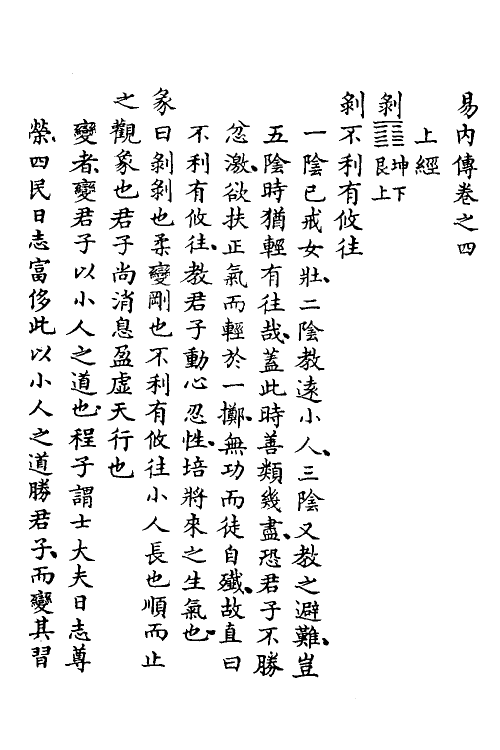 易內傳卷之四
上經
剝䷖坤下艮上
剝不利有攸往
一陰已戒女壯、二陰教遠小人、三陰又教之避難、豈
五陰時猶輕有往哉、蓋此時善類幾盡、恐君子不勝
忿激、欲扶正氣而輕於一擲、無功而徒自殲、故直曰
不利有攸往、教君子動心忍性、培將來之生氣也、
彖曰剝剝也柔變剛也不利有攸往小人長也順而止
之觀象也君子尚消息盈虛天行也
變者、變君子以小人之道也、程子謂士大夫日志尊
榮、四民日志富侈此以小人之道勝君子、而變其習